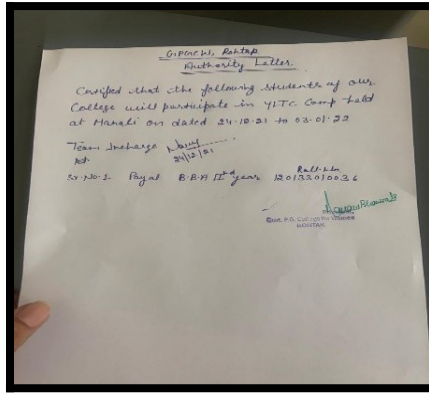 G.P.G.C.W, Rohtak
Authority Letter
Certified that the following students of our
College will participate in YLTC Camp held
at Manali on dated 24.12.21 to 03.01.22
Team Incharge
24/12/21
Sr.No.1. Payal B.B.A IInd year 120133010036
Roll.No.
Govt. P.G. College for Women
ROHTAK